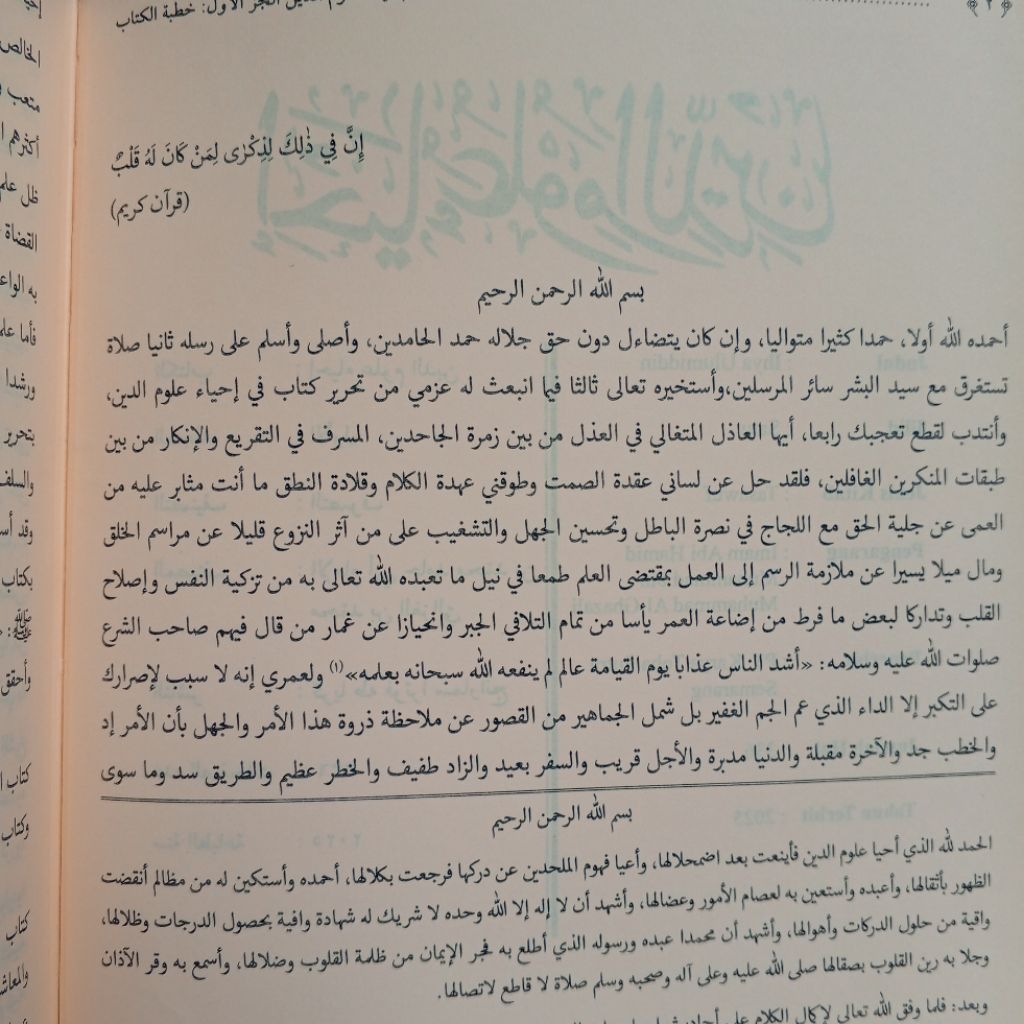 ﴿ ٢ ﴾
الجزء الأول: خطبة الكتاب
إِنَّ فِي ذَٰلِكَ لَذِكْرَى لِمَنْ كَانَ لَهُ قَلْبٌ
(قرآن كريم)
بسم الله الرحمن الرحيم
أحمده الله أولا، حمدا كثيرا متواليا، وإن كان يتضاءل دون حق جلاله حمد الحامدين، وأصلى وأسلم على رسله ثانيا صلاة
تستغرق مع سيد البشر سائر المرسلين،وأستخيره تعالى ثالثا فيما انبعث له عزمي من تحرير كتاب في إحياء علوم الدين،
وأنتدب لقطع تعجبك رابعا، أيها العاذل المتغالي في العذل من بين زمرة الجاحدين، المسرف في التقريع والإنكار من بين
طبقات المنكرين الغافلين، فلقد حل عن لساني عقدة الصمت وطوقني عهدة الكلام وقلادة النطق ما أنت مثابر عليه من
العمى عن جلية الحق مع اللجاج في نصرة الباطل وتحسين الجهل والتشغيب على من آثر النزوع قليلا عن مراسم الخلق
ومال ميلا يسيرا عن ملازمة الرسم إلى العمل بمقتضى العلم طمعا في نيل ما تعبده الله تعالى به من تزكية النفس وإصلاح
القلب وتداركا لبعض ما فرط من إضاعة العمر يأسا من تمام التلافي الجبر وانحيازا عن غمار من قال فيهم صاحب الشرع
صلوات الله عليه وسلامه: «أشد الناس عذابا يوم القيامة عالم لم ينفعه الله سبحانه بعلمه»(١) ولعمري إنه لا سبب لإصرارك
على التكبر إلا الداء الذي عم الجم الغفير بل شمل الجماهير من القصور عن ملاحظة ذروة هذا الأمر والجهل بأن الأمر إد
والخطب جد والآخرة مقبلة والدنيا مدبرة والأجل قريب والسفر بعيد والزاد طفيف والخطر عظيم والطريق سد وما سوى
بسم الله الرحمن الرحيم
الحمد لله الذي أحيا علوم الدين فأينعت بعد اضمحلالها، وأعيا فهوم الملحدين عن دركها فرجعت بكلالها، أحمده وأستكين له من مظالم أنقضت
الظهور بأثقالها، وأعبده وأستعين به لعصام الأمور وعضالها، وأشهد أن لا إله إلا الله وحده لا شريك له شهادة وافية بحصول الدرجات وظلالها،
واقية من حلول الدركات وأهوالها، وأشهد أن محمدا عبده ورسوله الذي أطلع به فجر الإيمان من ظلمة القلوب وضلالها، وأسمع به وقر الآذان
وجلا به رين القلوب بصقالها صلى الله عليه وعلى آله وصحبه وسلم صلاة لا قاطع لاتصالها.
وبعد: فلما وفق الله تعالى لإكمال الكلام على